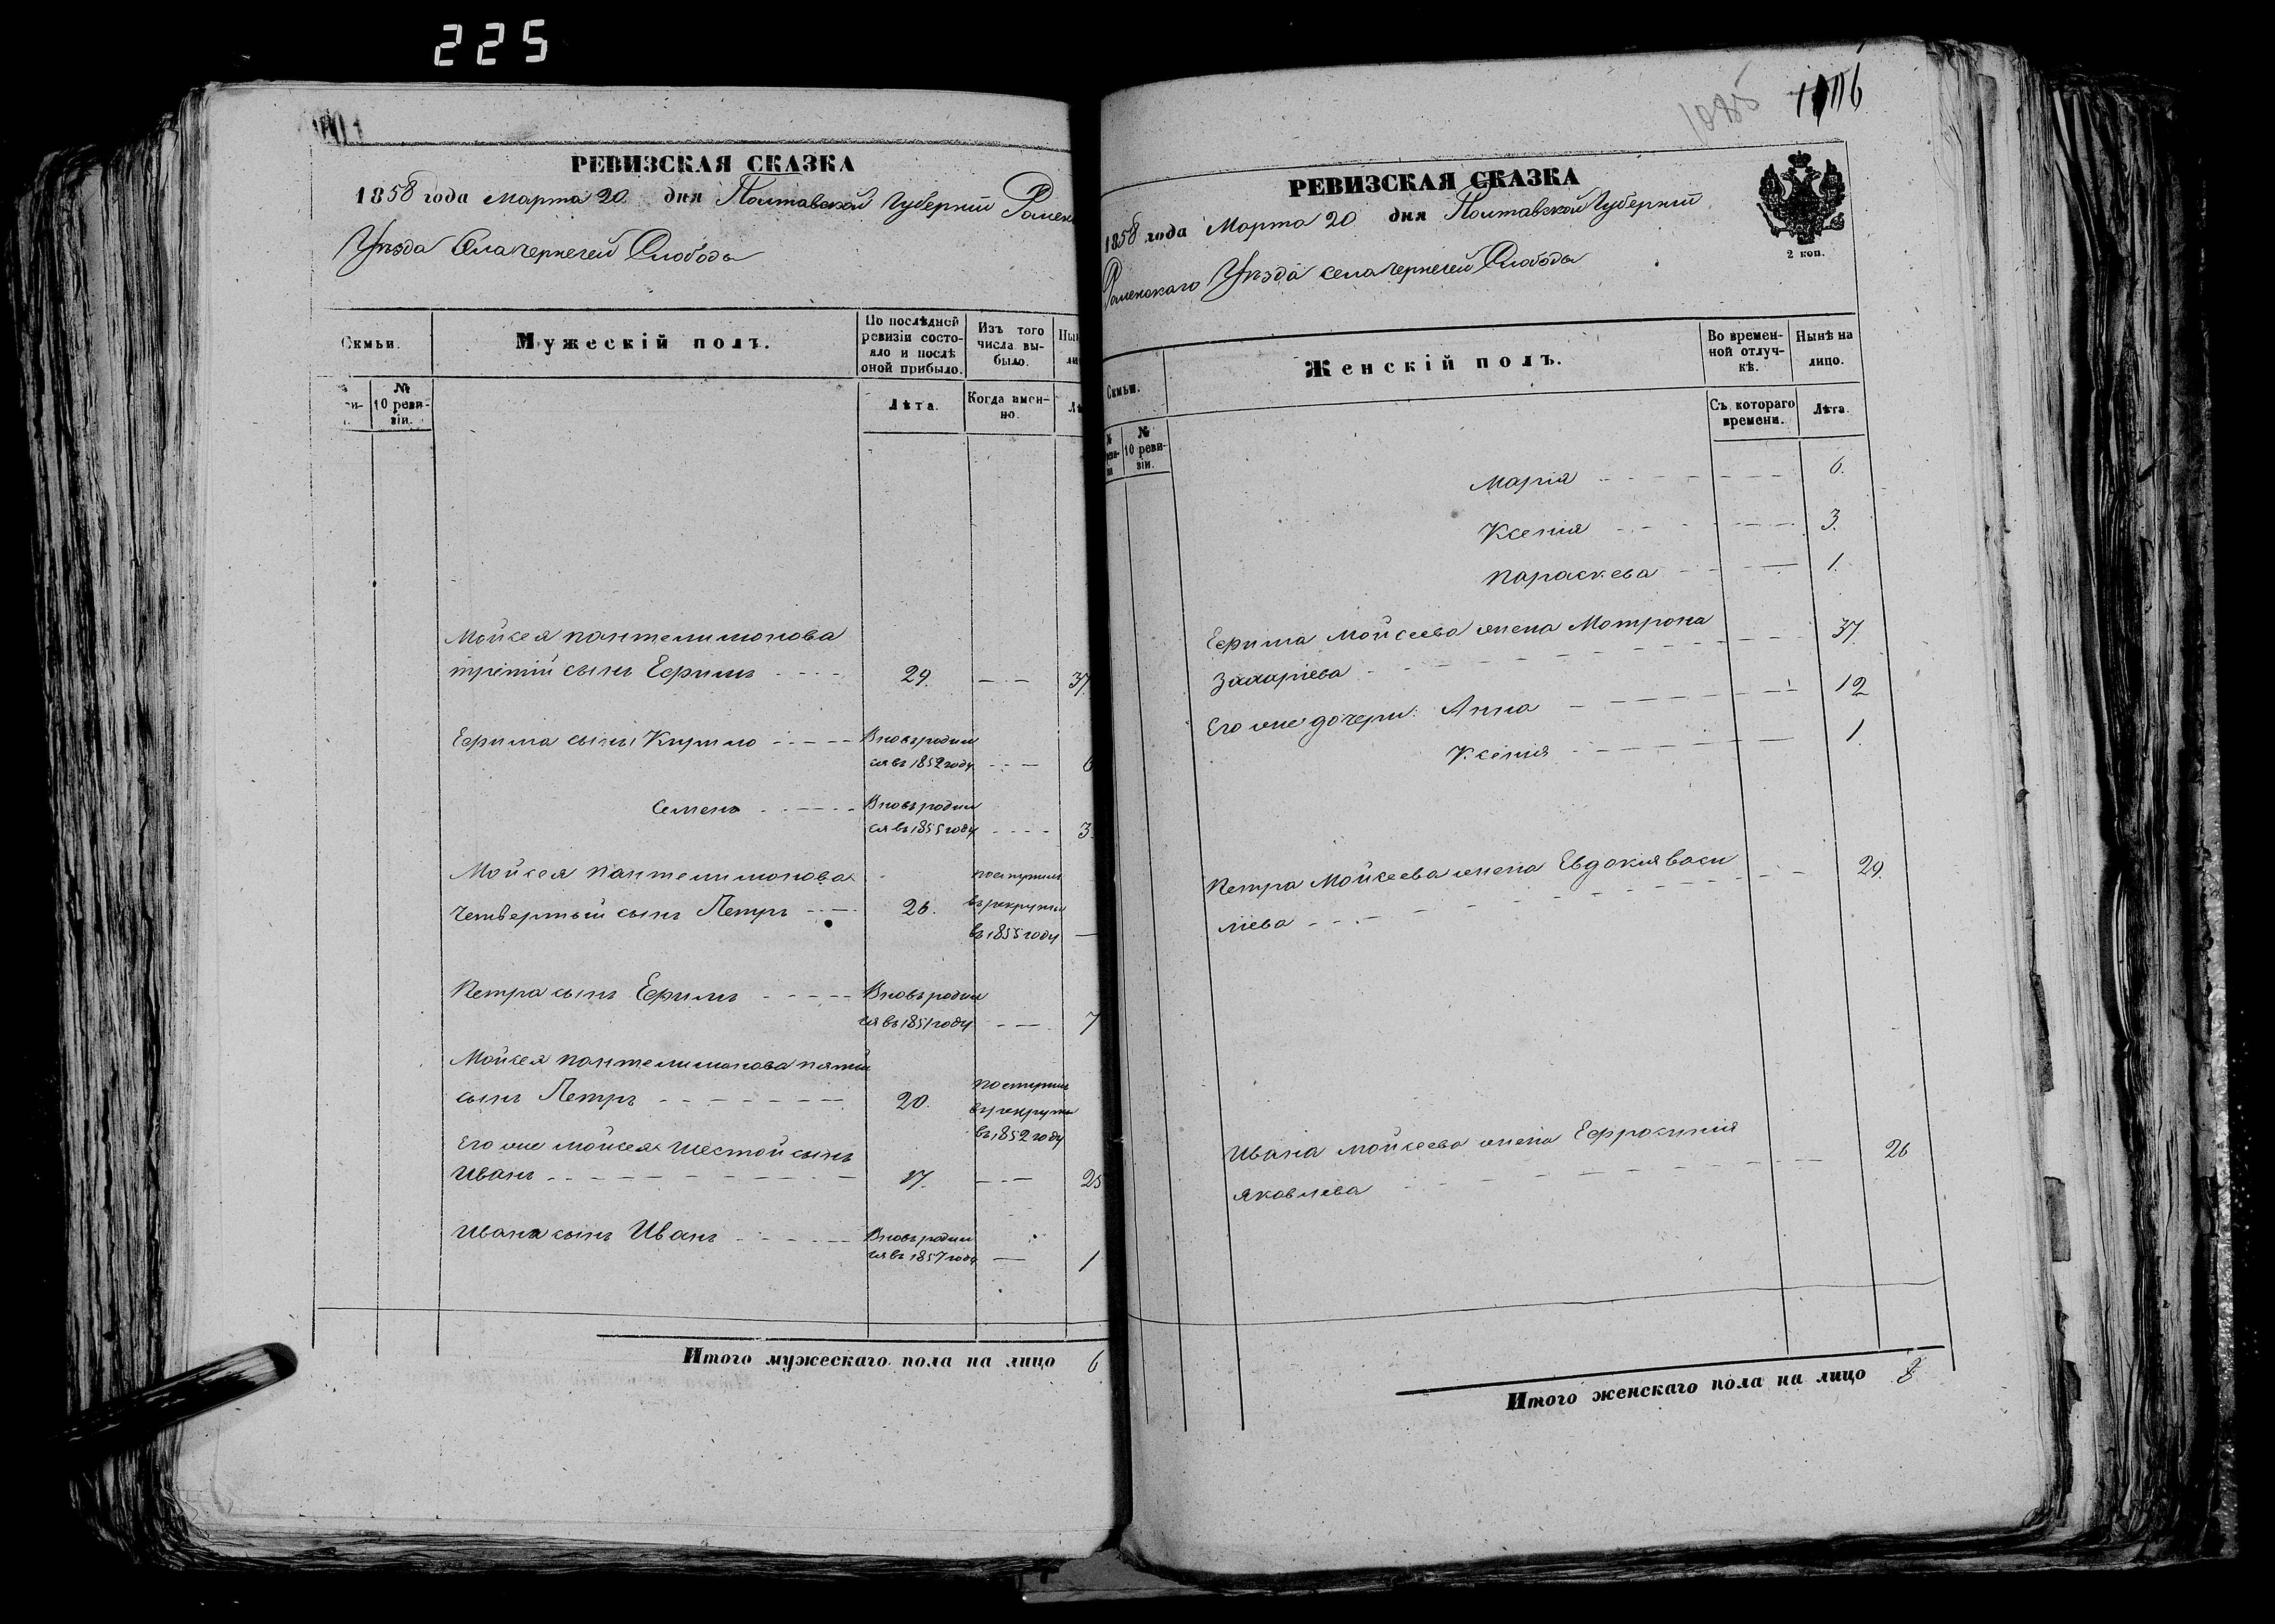 225
РЕВИЗСКАЯ СКАЗКА
1858 года Марта 20 дня Полтавской Губернии Ромен
Уѣзда Села Чернечей Слободы
Семьи.
Мужескій полъ.
По послѣдней ревизіи состояло и послѣ оной прибыло.
Изъ того числа выбыло.
№ 10 ревизіи.
Лѣта.
Когда именно.
Мойсея Пантелимонова
третій сынъ Ефимъ 29. 37
Ефима сыны Кирило Вновь родил
ся въ 1852 году 6
Семенъ Вновь родил
ся въ 1855 году 3.
Мойсея Пантелимонова поступилъ
четвертый сынъ Петръ 26. въ рекруты
въ 1855 году
Петра сынъ Ефимъ Вновь родил
ся въ 1851 году 7
Мойсея Пантелимонова пятый
сынъ Петръ 20. поступилъ
въ рекруты
въ 1852 году
Его же Мойсея шестой сынъ
Иванъ 17. 25
Ивана сынъ Иванъ Вновь родил
ся въ 1857 году 1
Итого мужескаго пола на лицо 6
1085 1106
РЕВИЗСКАЯ СКАЗКА
1858 года Марта 20 дня Полтавской Губернии
Роменскаго Уѣзда села Чернечей Слободы
2 коп.
Семьи.
Женскій полъ.
Во временной отлучкѣ.
Нынѣ на лицо.
№ 10 ревизіи.
Съ котораго времени.
Лѣта.
Марія 6.
Ксенія 3.
Параскева 1.
Ефима Мойсеева жена Мотрона
Захаріева 37.
Его же дочери: Анна 12
Ксенія 1.
Петра Мойсеева жена Евдокія Васи
лiева 29.
Ивана Мойсеева жена Ефросинія
Яковлева 26
Итого женскаго пола на лицо 8